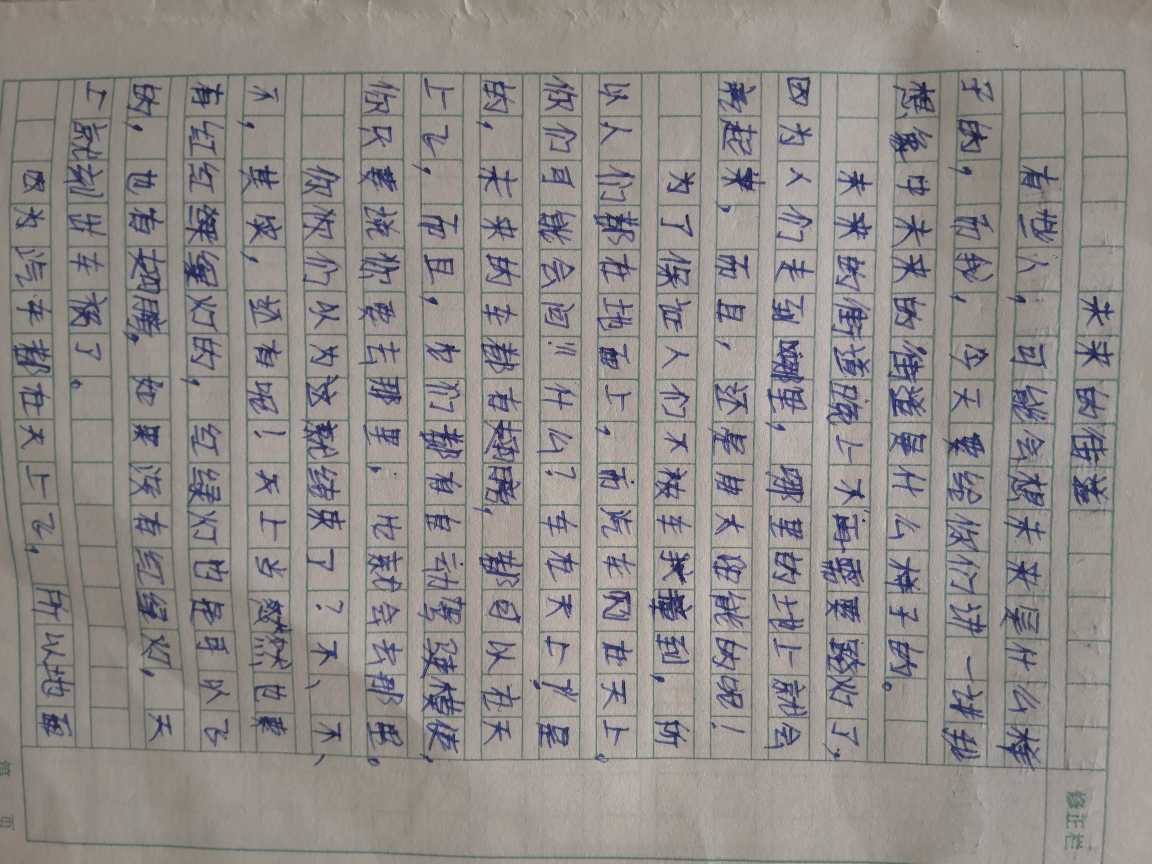 未来的街道
有些人，可能会想未来是什么样
子的，而我，今天要给你们讲一讲我
想象中未来的街道是什么样子的。
未来的街道晚上不需要路灯了，
因为人们走到哪里，哪里的地上就会
亮起来，而且，还是用太阳能的呢！
为了保证人们不被车撞到，所
以人们都在地面上，而汽车则在天上。
你们可能会问：什么？车在天上？是
的，未来的车都有翅膀，都可以在天
上飞，而且，它们都有自动驾驶模使，
你只要说你要去那里，它就会去那里。
你们以为这就结束了？不、不、
不，其实，还有呢！天上当然也要
有红绿灯的，红绿灯也是可以飞
的，也有翅膀，如果没有红绿灯，天
上就到处车祸了。
因为汽车都在天上飞，所以地面
修正栏
第 页